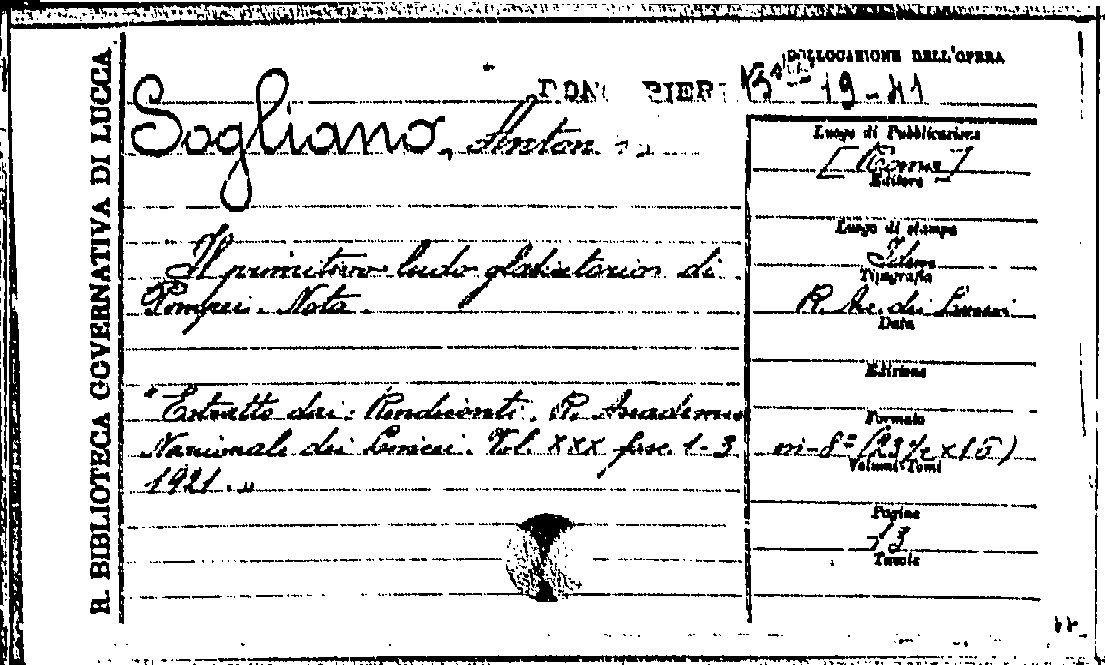 R. BIBLIOTECA GOVERNATIVA DI LUCCA
COLLOCAZIONE DELL'OPERA
DONO PIER
19-41
Sogliano, Anton
Luogo di Pubblicazione
[Roma]
Editore
Luogo di stampa
Idem
Tipografia
R. Ac. dei Lincei
Data
Edizione
Formato
in-8° (23½ x 15)
Volumi-Tomi
Pagine
13
Tavole
Il primitivo ludo gladiatorio di
Pompei. Nota.
"Estratto dai: Rendiconti. R. Accademia
Nazionale dei Lincei. Vol. XXX fasc. 1-3
1921."